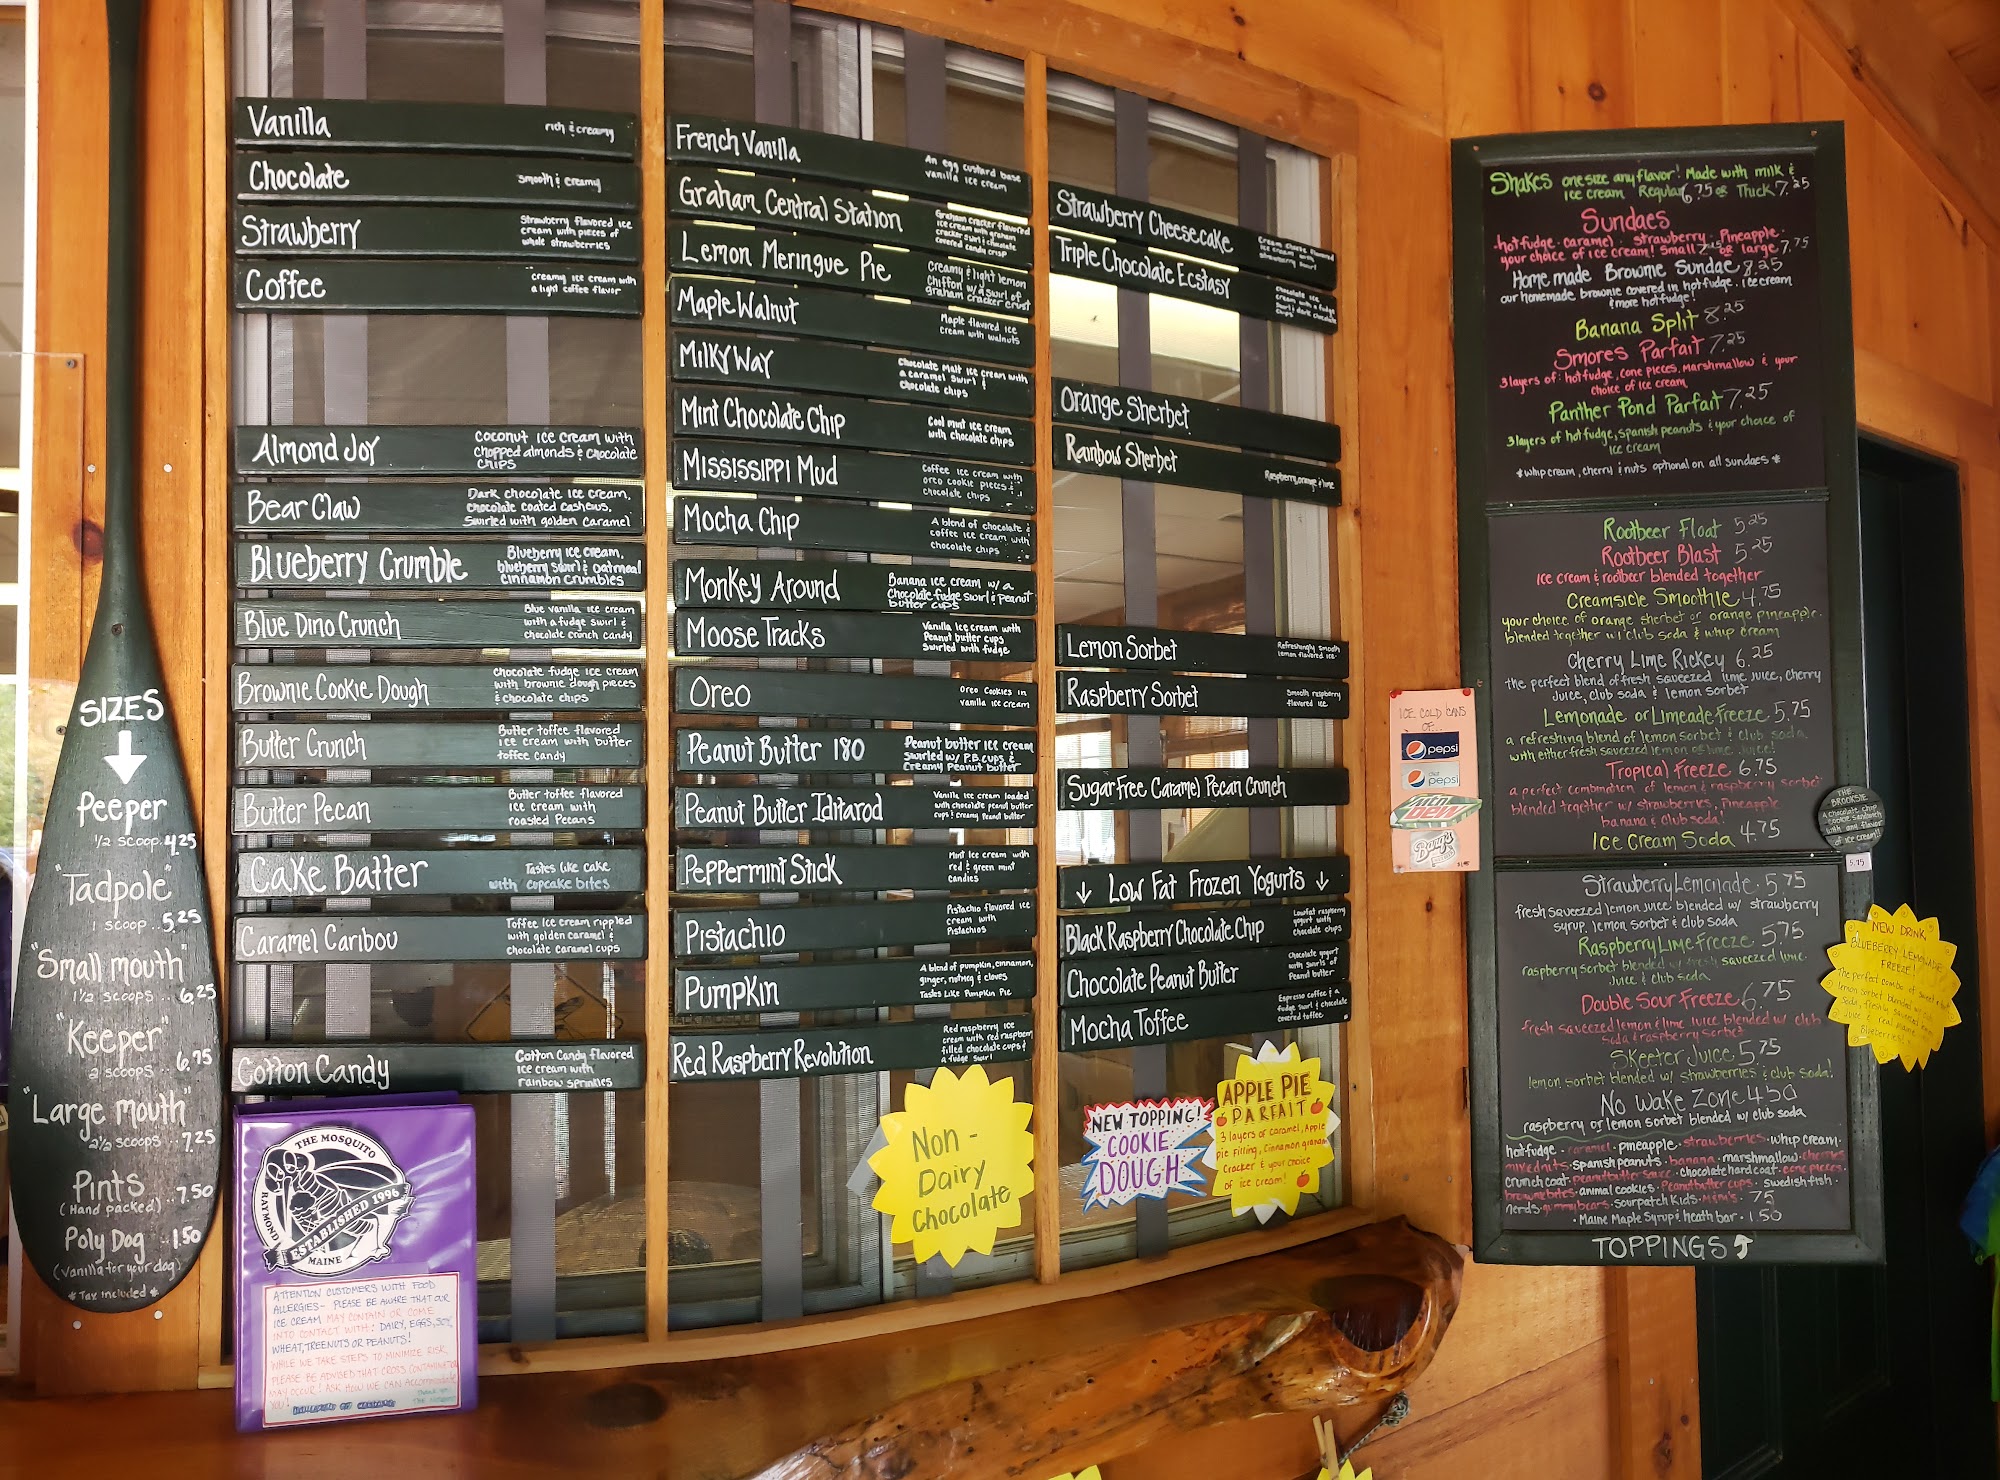 SIZES
Peeper
1/2 scoop. 4.25
"Tadpole"
1 scoop .. 5.25
"Small mouth"
1 1/2 scoops .. 6.25
"Keeper"
2 scoops .. 6.75
"Large mouth"
2 1/2 scoops .. 7.25
Pints .. 7.50
(Hand packed)
Poly Dog .. 1.50
(Vanilla for your dog)
*Tax included*
Vanilla
rich & creamy
Chocolate
smooth & creamy
Strawberry
Strawberry flavored ice
cream with pieces of
whole strawberries
Coffee
creamy ice cream with
a light coffee flavor
Almond Joy
Coconut ice cream with
chopped almonds & chocolate
chips
Bear Claw
Dark chocolate ice cream,
chocolate coated cashews,
swirled with golden caramel
Blueberry Crumble
Blueberry ice cream,
blueberry swirl & oatmeal
cinnamon crumbles
Blue Dino Crunch
Blue vanilla ice cream
with a fudge swirl &
chocolate crunch candy
Brownie Cookie Dough
Chocolate fudge ice cream
with brownie dough pieces
& chocolate chips
Butter Crunch
Butter toffee flavored
ice cream with butter
toffee candy
Butter Pecan
Butter toffee flavored
ice cream with
roasted Pecans
Cake Batter
Tastes like cake
with cupcake bites
Caramel Caribou
Toffee ice cream rippled
with golden caramel &
chocolate caramel cups
Cotton Candy
Cotton Candy flavored
ice cream with
rainbow sprinkles
THE MOSQUITO
RAYMOND
ESTABLISHED 1996
MAINE
ATTENTION CUSTOMERS WITH FOOD
ALLERGIES- PLEASE BE AWARE THAT OUR
ICE CREAM MAY CONTAIN OR COME
INTO CONTACT WITH: DAIRY, EGGS, SOY,
WHEAT, TREENUTS OR PEANUTS!
WHILE WE TAKE STEPS TO MINIMIZE RISK,
PLEASE BE ADVISED THAT CROSS CONTAMINATION
MAY OCCUR! ASK HOW WE CAN ACCOMMODATE
YOU!
French Vanilla
An egg custard base
vanilla ice cream
Graham Central Station
Graham cracker flavored
ice cream with graham
cracker swirl & chocolate
covered candy crisp
Lemon Meringue Pie
Creamy & light lemon
chiffon w/ a swirl of
graham cracker crust
Maple Walnut
Maple flavored ice
cream with walnuts
Milky Way
Chocolate Malt ice cream with
a caramel swirl &
chocolate chips
Mint Chocolate Chip
Cool mint ice cream
with chocolate chips
Mississippi Mud
Coffee ice cream with
oreo cookie pieces &
chocolate chips
Mocha Chip
A blend of chocolate &
coffee ice cream with
chocolate chips
Monkey Around
Banana ice cream w/ a
Chocolate fudge swirl & Peanut
butter cups
Moose Tracks
Vanilla ice cream with
Peanut butter cups
swirled with fudge
Oreo
Oreo Cookies in
vanilla ice cream
Peanut Butter 180
Peanut butter ice cream
swirled w/ P.B. cups &
Creamy Peanut butter
Peanut Butter Iditarod
Vanilla ice cream loaded
with chocolate peanut butter
cups & creamy Peanut butter
Peppermint Stick
Mint ice cream with
red & green mint
candies
Pistachio
Pistachio flavored ice
cream with
Pistachios
Pumpkin
A blend of pumpkin, cinnamon,
ginger, nutmeg & cloves
Tastes Like Pumpkin Pie
Red Raspberry Revolution
Red raspberry ice
cream with red raspberry
filled chocolate cups &
a fudge swirl
Non-
Dairy
Chocolate
Strawberry Cheesecake
Cream cheese flavored
ice cream with
strawberry swirl
Triple Chocolate Ecstasy
Chocolate ice
cream with a fudge
swirl & dark chocolate
chips
Orange Sherbet
Rainbow Sherbet
Raspberry, orange & lime
Lemon Sorbet
Refreshingly smooth
lemon flavored ice
Raspberry Sorbet
Smooth raspberry
flavored ice
Sugar Free Caramel Pecan Crunch
↓ Low Fat Frozen Yogurts ↓
Black Raspberry Chocolate Chip
Lowfat raspberry
yogurt with
chocolate chips
Chocolate Peanut Butter
Chocolate yogurt
with swirls of
Peanut butter
Mocha Toffee
Espresso coffee & a
fudge swirl & chocolate
covered toffee
NEW TOPPING!
COOKIE
DOUGH
APPLE PIE
PARFAIT
3 layers of caramel, Apple
pie filling, Cinnamon graham
cracker & your choice
of ice cream!
ICE COLD CANS
OF...
pepsi
diet
pepsi
MTN
DEW
Barq's
Shakes one size any flavor! Made with milk &
ice cream Regular 6.75 or Thick 7.25
Sundaes
hot fudge · caramel · strawberry · Pineapple ·
your choice of ice cream! Small or large 7.75
Home made Brownie Sundae 8.25
our homemade brownie covered in hot fudge, ice cream
& more hot fudge!
Banana Split 8.25
Smores Parfait 7.25
3 layers of: hot fudge, cone pieces, marshmallow & your
choice of ice cream
Panther Pond Parfait 7.25
3 layers of hot fudge, spanish peanuts & your choice of
ice cream
*whip cream, cherry & nuts optional on all sundaes*
Rootbeer Float 5.25
Rootbeer Blast 5.25
ice cream & rootbeer blended together
Creamsicle Smoothie 4.75
your choice of orange sherbet or orange pineapple
blended together w/ club soda & whip cream
Cherry Lime Rickey 6.25
the perfect blend of fresh squeezed lime juice, cherry
juice, club soda & lemon sorbet
Lemonade or Limeade Freeze 5.75
a refreshing blend of lemon sorbet & club soda
with either fresh squeezed lemon or lime juice!
Tropical Freeze 6.75
a perfect combination of lemon & raspberry sorbet
blended together w/ strawberries, pineapple
banana & club soda!
Ice Cream Soda 4.75
Strawberry Lemonade · 5.75
fresh squeezed lemon juice blended w/ strawberry
syrup, lemon sorbet & club soda
Raspberry Lime Freeze 5.75
raspberry sorbet blended w/ fresh squeezed lime
juice & club soda
Double Sour Freeze 6.75
fresh squeezed lemon & lime juice blended w/ club
soda & raspberry sorbet
Skeeter Juice 5.75
lemon sorbet blended w/ strawberries & club soda!
No Wake Zone 4.50
raspberry or lemon sorbet blended w/ club soda
hot fudge · caramel · pineapple · strawberries · whip cream ·
mixed nuts · spanish peanuts · banana · marshmallow · cherries
crunch coat · peanut butter sauce · chocolate hard coat · cone pieces ·
brownie bites · animal cookies · Peanut butter cups · swedish fish ·
nerds · gummy bears · sour patch kids · M&M's · .75
· Maine Maple Syrup & heath bar · 1.50
TOPPINGS
THE
BROOKSIE
A chocolate chip
cookie sandwich
with any flavor
of ice cream!!
5.75
NEW DRINK
BLUEBERRY LEMONADE
FREEZE!
The perfect combo of
lemon sorbet blended w/ club
soda, freshly squeezed lemon
juice & real maine
Blueberries!!